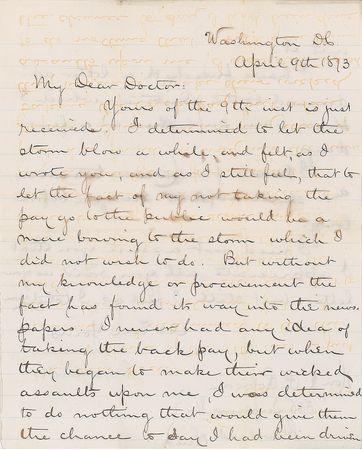 Washington DC
April 9th 1873
My Dear Doctor:
Yours of the 9th inst is just
received. I determined to let the
storm blow a while, and felt, as I
wrote you, and as I still feel, that to
let the fact of my not taking the
pay go to the public would be a
mere bowing to the storm which I
did not wish to do. But without
my knowledge or procurement the
fact has found its way into the news-
papers. I never had any idea of
taking the back pay, but when
they began to make their wicked
assaults upon me, I was determined
to do nothing that would give them
the chance to say I had been driven